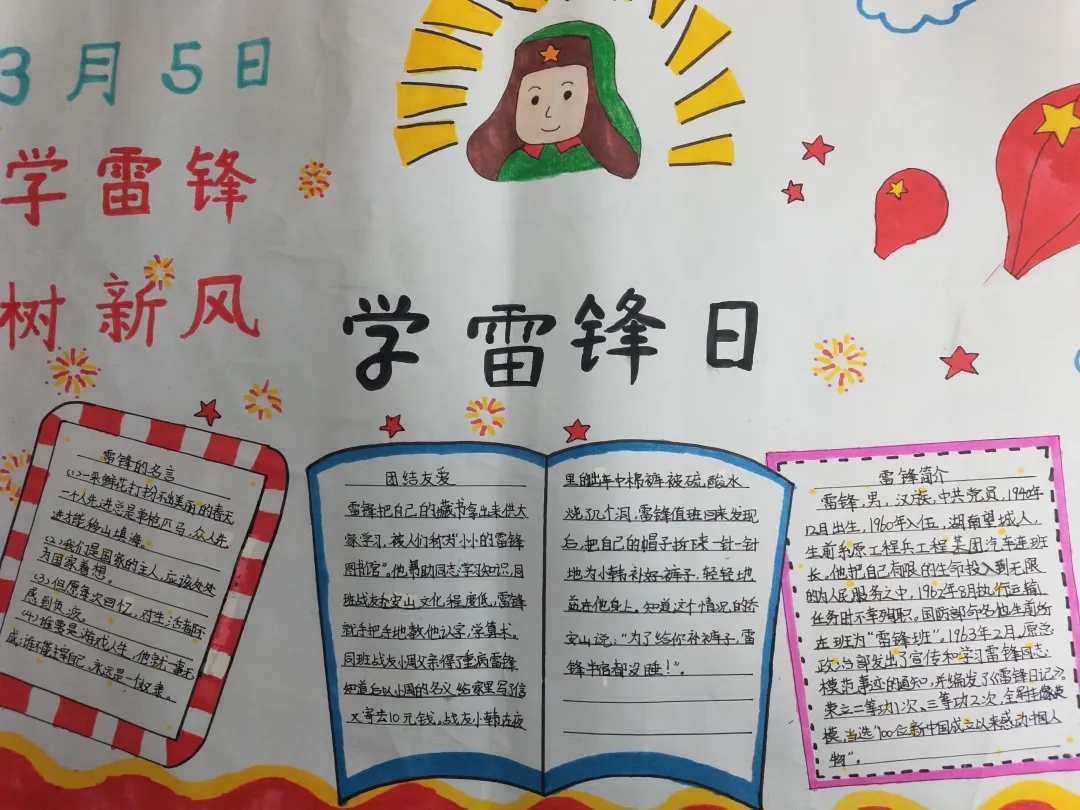 3月5日
学雷锋
树新风
学雷锋日
雷锋的名言
(1)一朵鲜花打扮不出美丽的春天
一个人先进总是单枪匹马,众人先
进才能移山填海。
(2)我们是国家的主人,应该处处
为国家着想。
(3)但愿每次回忆,对生活都不
感到负疚。
(4)谁要是游戏人生,他就一事无
成,谁不能主宰自己,永远是一个奴隶。
团结友爱
雷锋把自己的藏书拿出来供大
家学习,被人们称为"小小的雷锋
图书馆"。他帮助同志学习知识,同
班战友乔安山文化程度低,雷锋
就手把手地教他认字,学算术。
同班战友小周父亲得了重病雷锋
知道后以小周的名义给家里写了信
又寄去10元钱,战友小韩在夜
里的出车中棉裤被硫酸水
烧了几个洞,雷锋值班回来发现
后,把自己的帽子拆下来一针一针
地为小韩补好裤子,轻轻地
盖在他身上。知道这个情况的乔
安山说:"为了给你补裤子,雷
锋半宿都没睡!"。
雷锋简介
雷锋,男,汉族,中共党员,1940年
12月出生,1960年入伍,湖南望城人,
生前系原工程兵工程某团汽车连班
长。他把自己有限的生命投入到无限
的为人民服务之中,1962年8月执行运输
任务时不幸殉职。国防部命名他生前所
在班为"雷锋班"。1963年2月,原总
政治部发出了宣传和学习雷锋同志
模范事迹的通知,并编发了《雷锋日记》。
荣立二等功1次、三等功2次,
模,当选"100位新中国成立以来感动中国人
物"。